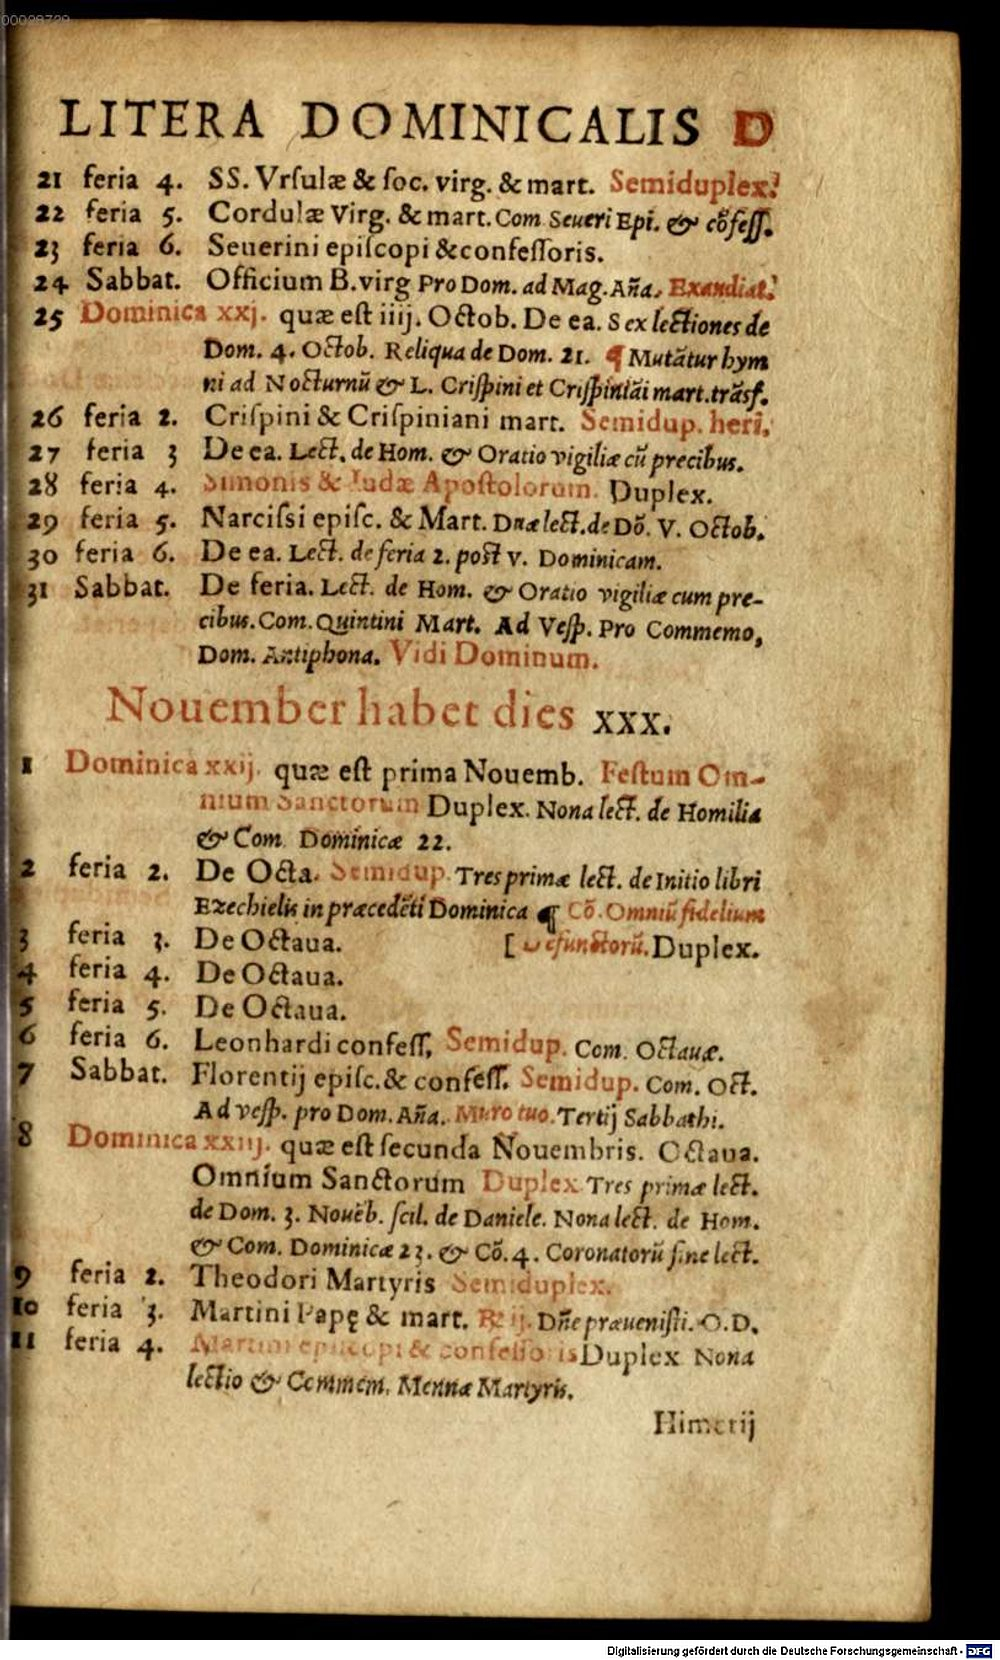 00028729
LITERA DOMINICALIS D
21 feria 4. SS. Vrſulæ & ſoc. virg. & mart. Semiduplex.
22 feria 5. Cordulæ Virg. & mart. Com Seueri Epi. & cõfeſſ.
23 feria 6. Seuerini epiſcopi & confeſſoris.
24 Sabbat. Officium B. virg Pro Dom. ad Mag. Aña. Exaudiat.
25 Dominica xxj. quæ eſt iiij. Octob. De ea. Sex lectiones de
Dom. 4. Octob. Reliqua de Dom. 21. ¶ Mutãtur hym
ni ad Nocturnũ & L. Criſpini et Criſpiniãi mart. trãſf.
26 feria 2. Criſpini & Criſpiniani mart. Semidup. heri.
27 feria 3 De ea. Lect. de Hom. & Oratio vigiliæ cũ precibus.
28 feria 4. Simonis & Iudæ Apoſtolorum. Duplex.
29 feria 5. Narciſsi epiſc. & Mart. Duæ lect. de Dõ. V. Octob.
30 feria 6. De ea. Lect. de feria 2. poſt v. Dominicam.
31 Sabbat. De feria. Lect. de Hom. & Oratio vigiliæ cum pre-
cibus. Com. Quintini Mart. Ad Veſp. Pro Commemo,
Dom. Antiphona. Vidi Dominum.
Nouember habet dies XXX.
1 Dominica xxij. quæ eſt prima Nouemb. Feſtum Om-
nium Sanctorum Duplex. Nona lect. de Homilia
& Com. Dominicæ 22.
2 feria 2. De Octa. Semidup. Tres primæ lect. de Initio libri
Ezechielis in præcedẽti Dominica ¶ Cõ. Omniũ fidelium
3 feria 3. De Octaua. [Defunctorũ. Duplex.
4 feria 4. De Octaua.
5 feria 5. De Octaua.
6 feria 6. Leonhardi confeſſ. Semidup. Com. Octauæ.
7 Sabbat. Florentij epiſc. & confeſſ. Semidup. Com. Oct.
Ad veſp. pro Dom. Aña. Muro tuo. Tertij Sabbathi.
8 Dominica xxiij. quæ eſt ſecunda Nouembris. Octaua.
Omnium Sanctorum Duplex Tres primæ lect.
de Dom. 3. Nouẽb. ſcil. de Daniele. Nona lect. de Hom.
& Com. Dominicæ 23. & Cõ. 4. Coronatorũ ſine lect.
9 feria 2. Theodori Martyris Semiduplex.
10 feria 3. Martini Papę & mart. ij. Dñe præueniſti. O. D.
11 feria 4. Martini epiſcopi & confeſſoris Duplex Nona
lectio & Commem. Mennæ Martyris.
Himerij
Digitalisierung gefördert durch die Deutsche Forschungsgemeinschaft - DFG